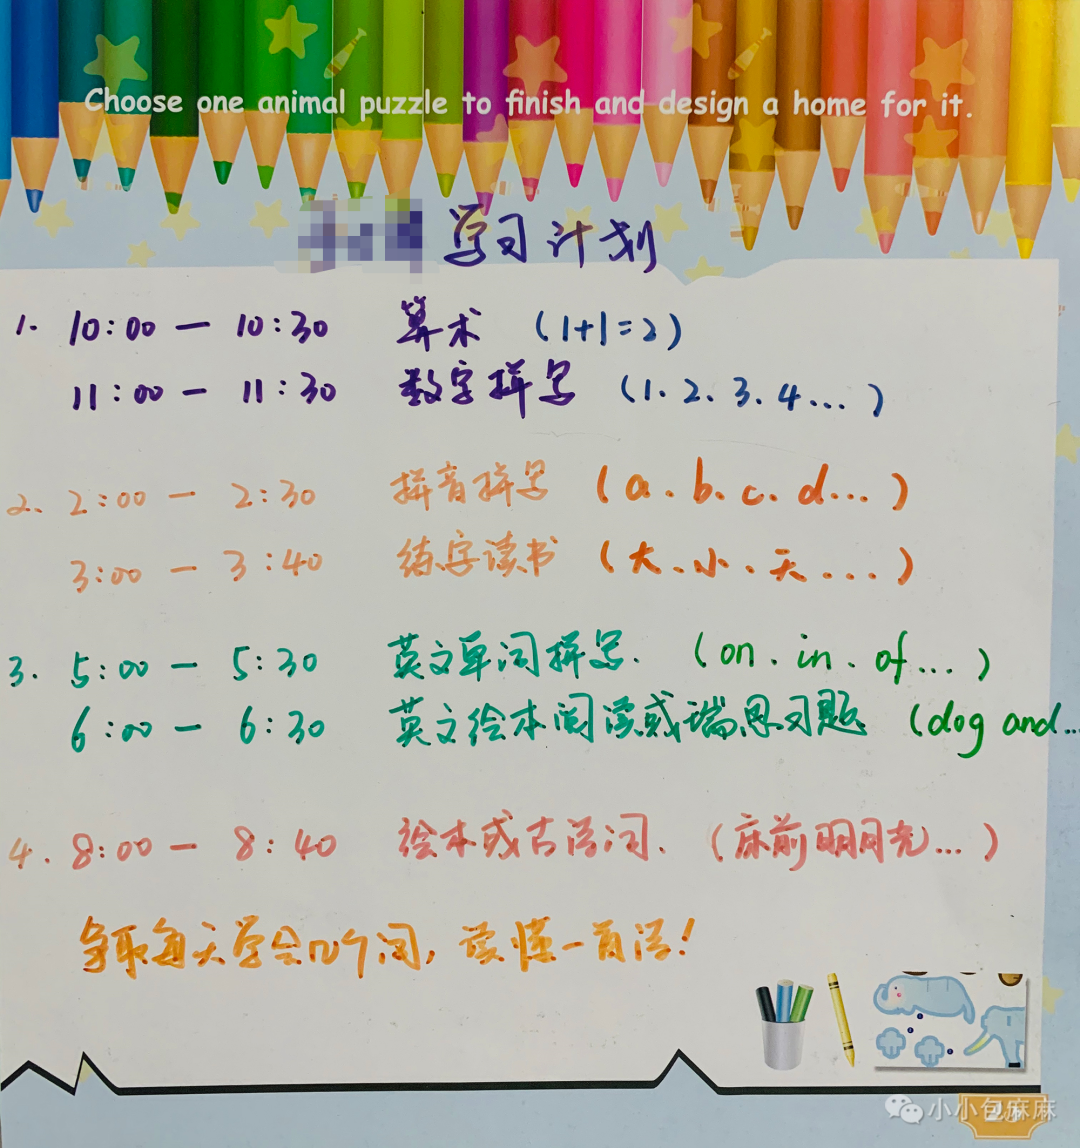 Choose one animal puzzle to finish and design a home for it.
学习计划
1. 10:00 — 10:30 算术 (1+1=2)
11:00 — 11:30 数字拼写 (1.2.3.4...)
2. 2:00 — 2:30 拼音拼写 (a.b.c.d...)
3:00 — 3:40 练字读书 (大.小.天....)
3. 5:00 — 5:30 英文单词拼写. (on.in.of...)
6:00 — 6:30 英文绘本阅读或瑞思习题 (dog and...
4. 8:00 — 8:40 绘本或古诗词. (床前明月光...)
争取每天学会几个词, 读懂一首诗!
小小包麻麻